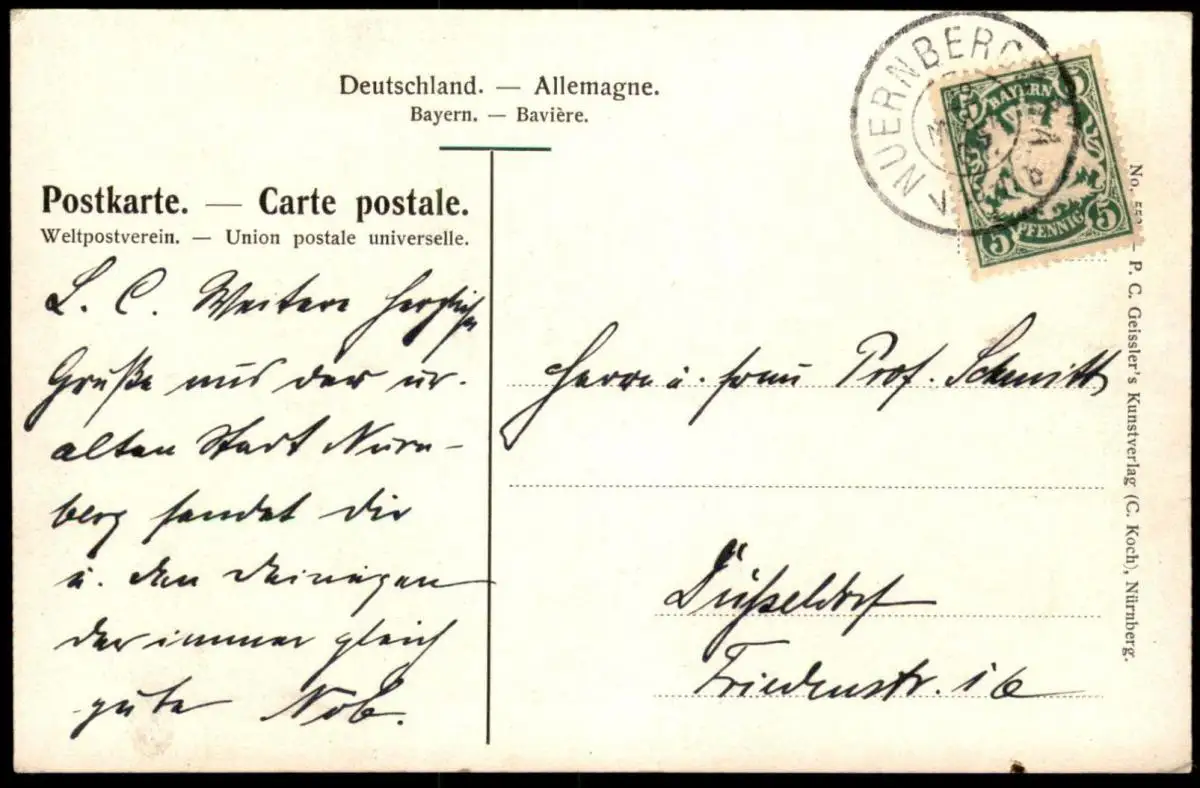 Deutschland. — Allemagne.
Bayern. — Bavière.
Postkarte. — Carte postale.
Weltpostverein. — Union postale universelle.
L. C. Weitere herzliche
Grüße aus der ur-
alten Stadt Nürn-
berg sendet dir
u. den deinigen
der immer gleich
gute Nob.
NUERNBERG
5 BAYERN 5
5 PFENNIG 5
Herrn u. Frau Prof. Schmitt
Düsseldorf
Friedenstr. 16
No. — P. C. Geissler's Kunstverlag (C. Koch), Nürnberg.